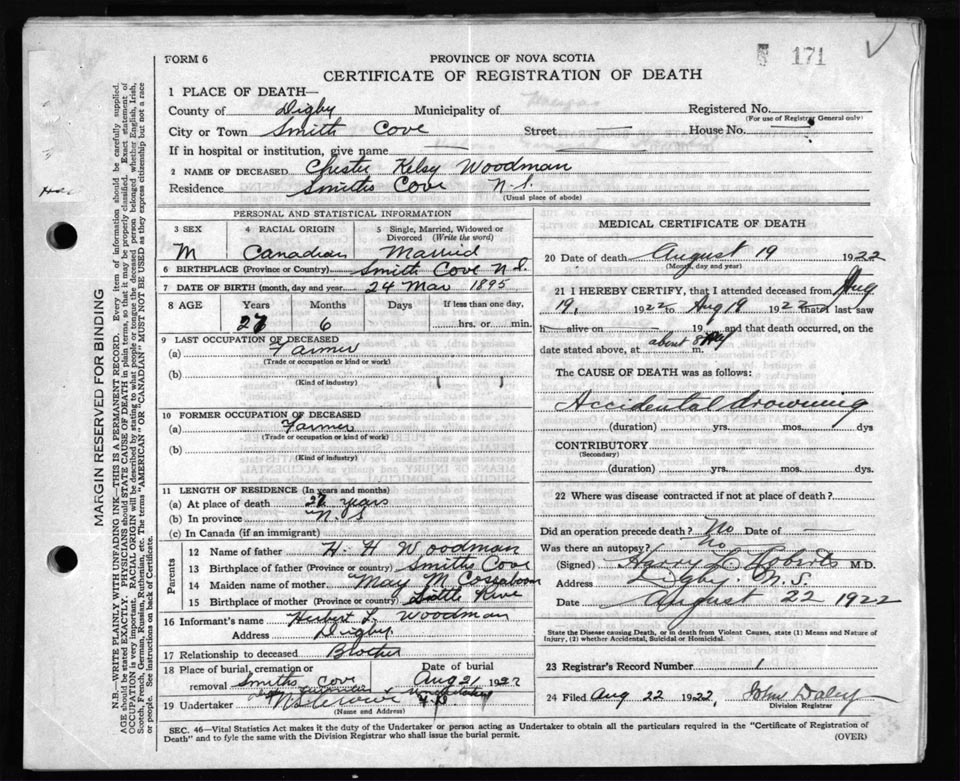 FORM 6
PROVINCE OF NOVA SCOTIA
171
CERTIFICATE OF REGISTRATION OF DEATH
1 PLACE OF DEATH—
County of Digby Municipality of Registered No.
(For use of Registrar General only)
City or Town Smith Cove Street — House No. —
If in hospital or institution, give name —
2 NAME OF DECEASED Chester Kelsy Woodman
Residence Smiths Cove N.S.
(Usual place of abode)
PERSONAL AND STATISTICAL INFORMATION
3 SEX 4 RACIAL ORIGIN 5 Single, Married, Widowed or Divorced (Write the word)
M Canadian Married
6 BIRTHPLACE (Province or Country) Smith Cove N.S.
7 DATE OF BIRTH (month, day and year) 24 Mar 1895
8 AGE Years Months Days If less than one day,
27 6 hrs. or min.
9 LAST OCCUPATION OF DECEASED
(a) Farmer
(Trade or occupation or kind or work)
(b)
(Kind of industry)
10 FORMER OCCUPATION OF DECEASED
(a) Farmer
(Trade or occupation or kind of work)
(b)
(Kind of industry)
11 LENGTH OF RESIDENCE (In years and months)
(a) At place of death 27 years
(b) In province N.S
(c) In Canada (if an immigrant)
Parents
12 Name of father H. H Woodman
13 Birthplace of father (Province or country) Smiths Cove
14 Maiden name of mother May M Cossaboom
15 Birthplace of mother (Province or country)
16 Informant's name Herbert L. Woodman
Address Digby
17 Relationship to deceased Brother
18 Place of burial, cremation or removal Smiths Cove
Date of burial Aug 21 1922
19 Undertaker
(Name and Address)
MEDICAL CERTIFICATE OF DEATH
20 Date of death August 19 1922
(Month, day and year)
21 I HEREBY CERTIFY, that I attended deceased from Aug
19, 1922 to Aug 19 1922 that I last saw
h— alive on — 19 and that death occurred, on
date stated above, at about 8
The CAUSE OF DEATH was as follows:
Accidental drowning
(duration) yrs. mos. dys
CONTRIBUTORY
(Secondary)
(duration) yrs. mos. dys.
22 Where was disease contracted if not at place of death?
Did an operation precede death? No Date of —
Was there an autopsy? no
(Signed) Harry L. Roberts M.D.
Address Digby. N.S.
Date August 22 1922
State the Disease causing Death, or in death from Violent Causes, state (1) Means and Nature of
Injury, (2) whether Accidental, Suicidal or Homicidal.
23 Registrar's Record Number 1
24 Filed Aug 22 1922, John Daley
Division Registrar
SEC. 46—Vital Statistics Act makes it the duty of the Undertaker or person acting as Undertaker to obtain all the particulars required in the "Certificate of Registration of
Death" and to fyle the same with the Division Registrar who shall issue the burial permit.
(OVER)
MARGIN RESERVED FOR BINDING
N.B.—WRITE PLAINLY WITH UNFADING INK—THIS IS A PERMANENT RECORD. Every item of information should be carefully supplied.
AGE should be stated EXACTLY. PHYSICIANS should STATE CAUSE OF DEATH in plain terms, so that it may be properly classified. Exact statement of
OCCUPATION is very important. RACIAL ORIGIN will be described by stating to what people or tongue the deceased person belonged whether English, Irish,
Scotch, French, German, Russian, Ruthenian, etc. The terms "AMERICAN" OR "CANADIAN" MUST NOT BE USED as they express citizenship but not a race
or people. See instructions on back of Certificate.